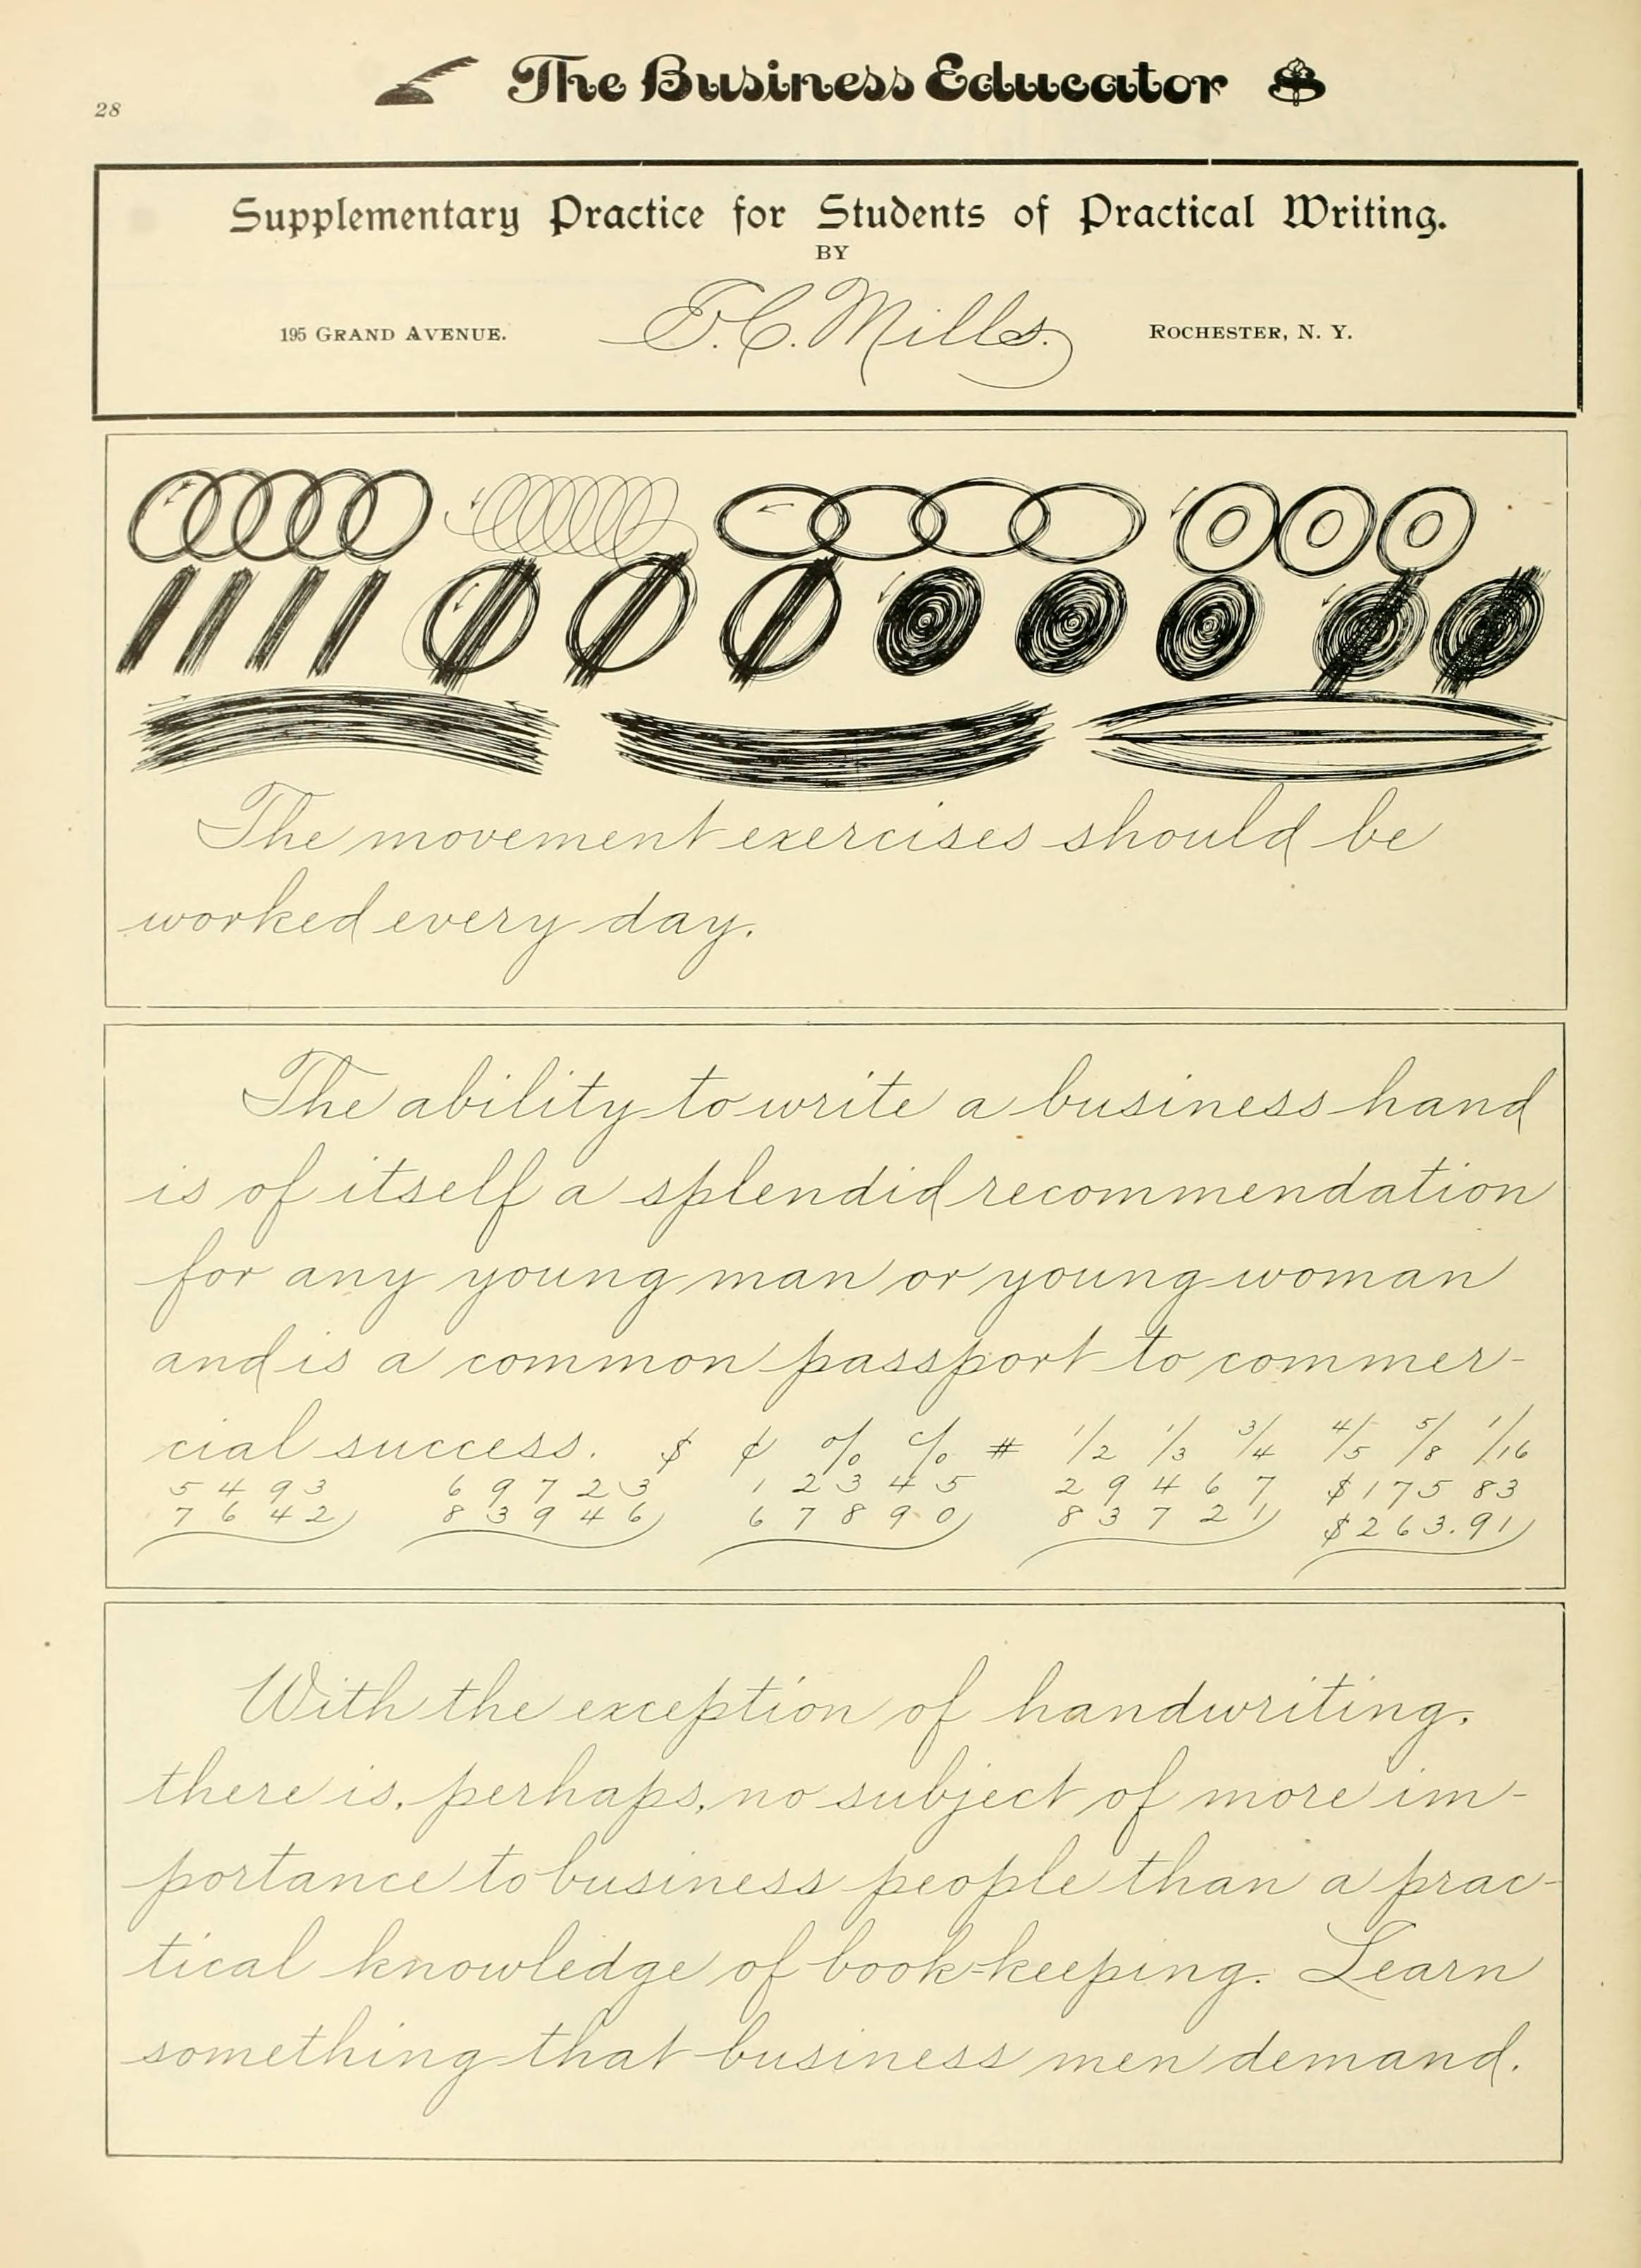 28
The Business Educator
Supplementary Practice for Students of Practical Writing.
BY
195 GRAND AVENUE.
E.C. Mills.
ROCHESTER, N. Y.
The movement exercises should be
worked every day.
The ability to write a business hand
is of itself a splendid recommendation
for any young man or young woman
and is a common passport to commer-
cial success. $ ¢ % c/o # 1/2 1/3 3/4 4/5 5/8 1/16
5493 69723 12345 29467 $175 83
7642 83946 67890 83721 $263.91
With the exception of handwriting,
there is, perhaps, no subject of more im-
portance to business people than a prac-
tical knowledge of book-keeping. Learn
something that business men demand.